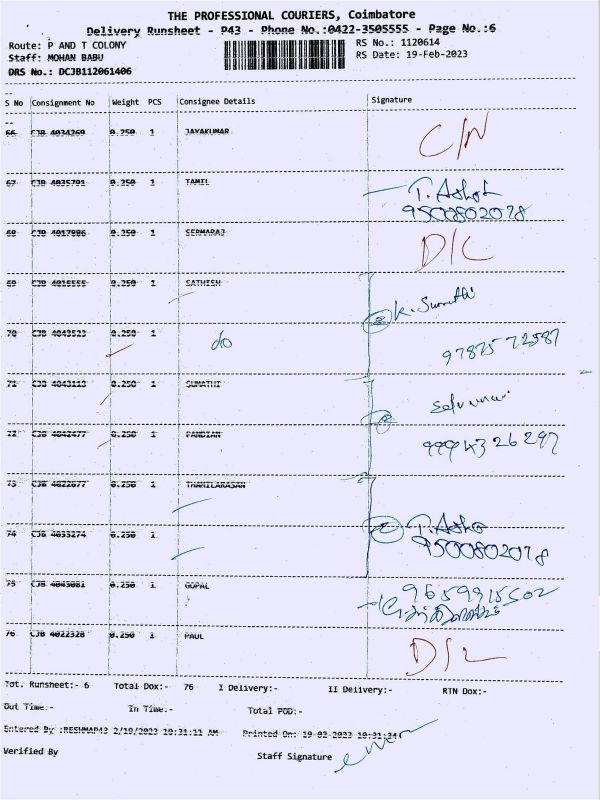 THE PROFESSIONAL COURIERS, Coimbatore
Delivery Runsheet - P43 - Phone No.:0422-3505555 - Page No.:6
Route: P AND T COLONY RS No.: 1120614
Staff: MOHAN BABU RS Date: 19-Feb-2023
DRS No.: DCJB112061406
S No Consignment No Weight PCS Consignee Details Signature
66 CJB 4034260 0.250 1 JAYAKUMAR C/N
67 CJB 4035791 0.250 1 TAMIL T. Ashok
9500802078
68 CJB 4017986 0.350 1 SERMARAJ D/L
69 CJB 4015555 0.250 1 SATHISH K. Sumathi
70 CJB 4043523 0.250 1 do 97875 72587
71 CJB 4043113 0.250 1 SUMATHI
72 CJB 4042477 0.250 1 PANDIAN 9994326297
73 CJB 4022677 0.250 1 THAMILARASAN
74 CJB 4033274 0.250 1 T. Ashok
9500802078
75 CJB 4043081 0.250 1 GOPAL 9659915502
76 CJB 4022328 0.250 1 PAUL D/L
Tot. Runsheet:- 6 Total Dox:- 76 I Delivery:- II Delivery:- RTN Dox:-
Out Time:- In Time:- Total POD:-
Entered By :RESHMAP43 2/19/2023 10:31:11 AM Printed On: 19-02-2023 10:31:34
Verified By Staff Signature